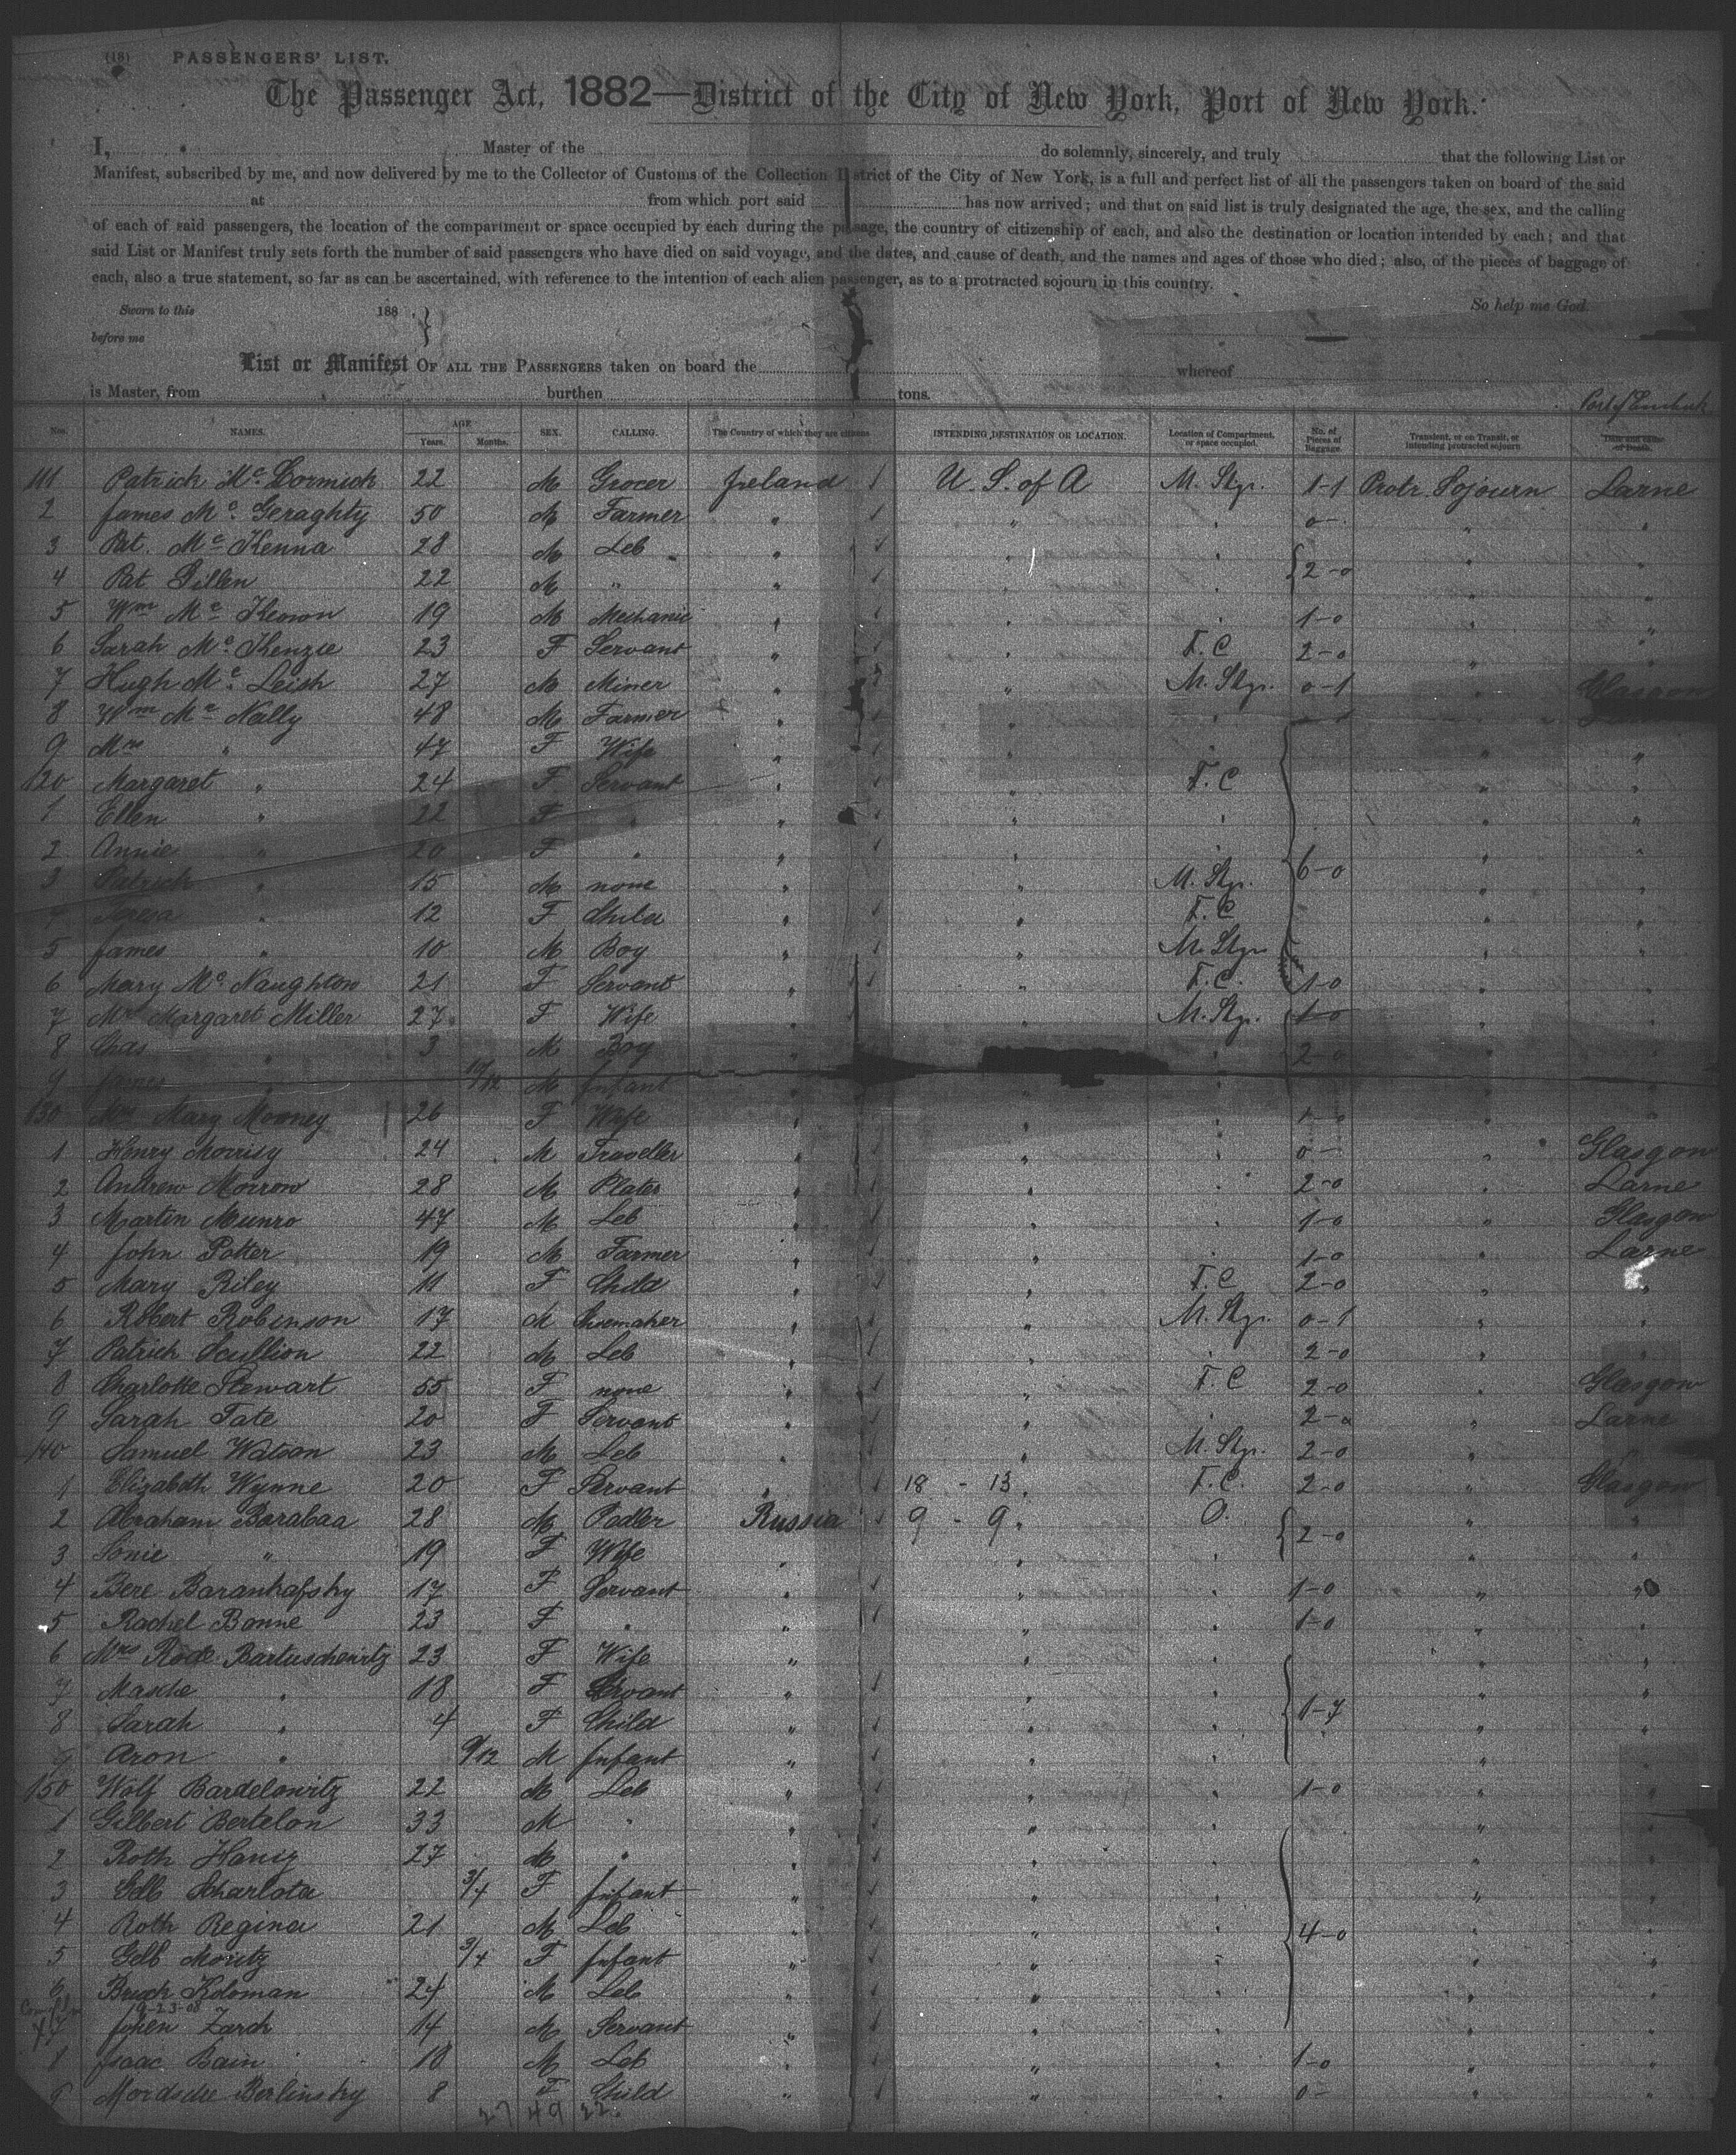 (18) PASSENGERS' LIST.
The Passenger Act, 1882—District of the City of New York, Port of New York.
I, Master of the do solemnly, sincerely, and truly that the following List or
Manifest, subscribed by me, and now delivered by me to the Collector of Customs of the Collection District of the City of New York, is a full and perfect list of all the passengers taken on board of the said
at from which port said has now arrived; and that on said list is truly designated the age, the sex, and the calling
of each of said passengers, the location of the compartment or space occupied by each during the passage, the country of citizenship of each, and also the destination or location intended by each; and that
said List or Manifest truly sets forth the number of said passengers who have died on said voyage, and the dates, and cause of death, and the names and ages of those who died; also, of the pieces of baggage of
each, also a true statement, so far as can be ascertained, with reference to the intention of each alien passenger, as to a protracted sojourn in this country.
Sworn to this 188 So help me God.
before me
List or Manifest OF ALL THE PASSENGERS taken on board the whereof
is Master, from burthen tons.
Port of Embark
Nos. NAMES. AGE Years. Months. SEX. CALLING. The Country of which they are citizens INTENDING DESTINATION OR LOCATION. Location of Compartment, or space occupied. No. of Pieces of Baggage. Transient, or on Transit, or intending protracted sojourn. Date and cause of Death.
111 Patrick McCormick 22 M Grocer Ireland U. S. of A M. Stgr. 1-1 Protr. Sojourn Larne
2 James Mc Geraghty 50 M Farmer " " " 0- " "
3 Pat. McKenna 28 M Leb " " " 2-0 " "
4 Pat Gillen 22 M " " " " " "
5 Wm McKeown 19 M Mechanic " " " 1-0 " "
6 Sarah McKenzie 23 F Servant " " F. C 2-0 " "
7 Hugh McLeish 27 M Miner " " M. Stgr. 0-1 " Glasgow
8 Wm McNally 48 M Farmer " " "
9 Mrs " 47 F Wife " " " " "
120 Margaret " 24 F Servant " " F. C " "
1 Ellen " 22 F " " " " " "
2 Annie " 20 F " " " " 6-0 " "
3 Patrick " 15 M none " " M. Stgr. " "
4 Teresa " 12 F Child " " F. C " "
5 James " 10 M Boy " " M. Stgr " "
6 Mary McNaughton 21 F Servant " " F. C. 1-0 " "
7 Mrs Margaret Miller 27 F Wife " " M. Stgr. 1-0 " "
8 Chas " 3 M Boy " " 2-0 " "
9 James " 10/12 M Infant " " " " "
130 Mrs Mary Mooney 26 F Wife " " " 1-0 " "
1 Henry Morrisy 24 M Traveller " " " 0- " Glasgow
2 Andrew Morrow 28 M Plater " " " 2-0 " Larne
3 Martin Munro 47 M Leb " " " 1-0 " Glasgow
4 John Potter 19 M Farmer " " " 1-0 " Larne
5 Mary Riley 11 F Child " " F. C 2-0 " "
6 Robert Robinson 17 M Shoemaker " " M. Stgr. 0-1 " "
7 Patrick Scullion 22 M Leb " " " 2-0 " "
8 Charlotte Stewart 55 F none " " F. C 2-0 " Glasgow
9 Sarah Tate 20 F Servant " " " 2-0 " Larne
140 Samuel Watson 23 M Leb " " M. Stgr. 2-0 " "
1 Elizabeth Wynne 20 F Servant " 18 - 13 " F. C. 2-0 " Glasgow
2 Abraham Barabaa 28 M Pedler Russia 9 - 9 " O. 2-0 " "
3 Sonie " 19 F Wife " " " " "
4 Bere Barankafsky 17 F Servant " " " 1-0 " "
5 Rachel Bonne 23 F " " " " 1-0 " "
6 Mrs Rode Bartuschewitz 23 F Wife " " " " "
7 Masche " 18 F Servant " " " 1-7 " "
8 Sarah " 4 F Child " " " " "
9 Aron " 9/12 M Infant " " " " "
150 Wolf Bardelowitz 22 M Leb " " " 1-0 " "
1 Gilbert Bertelon 33 M " " " " " "
2 Roth Hanig 27 M " " " " " "
3 Gelb Scharlota 3/4 F Infant " " " " "
4 Roth Regina 21 M Leb " " " 4-0 " "
5 Gelb Moritz 3/4 F Infant " " " " "
6 Bruck Koloman 24 M Leb " " " " "
9-23-08
7 Johen Zarch 14 M Servant " " " " "
8 Isaac Bain 18 M Leb " " " 1-0 " "
9 Mordsche Berlinsky 8 F Child " " " 0- " "
27 49 22